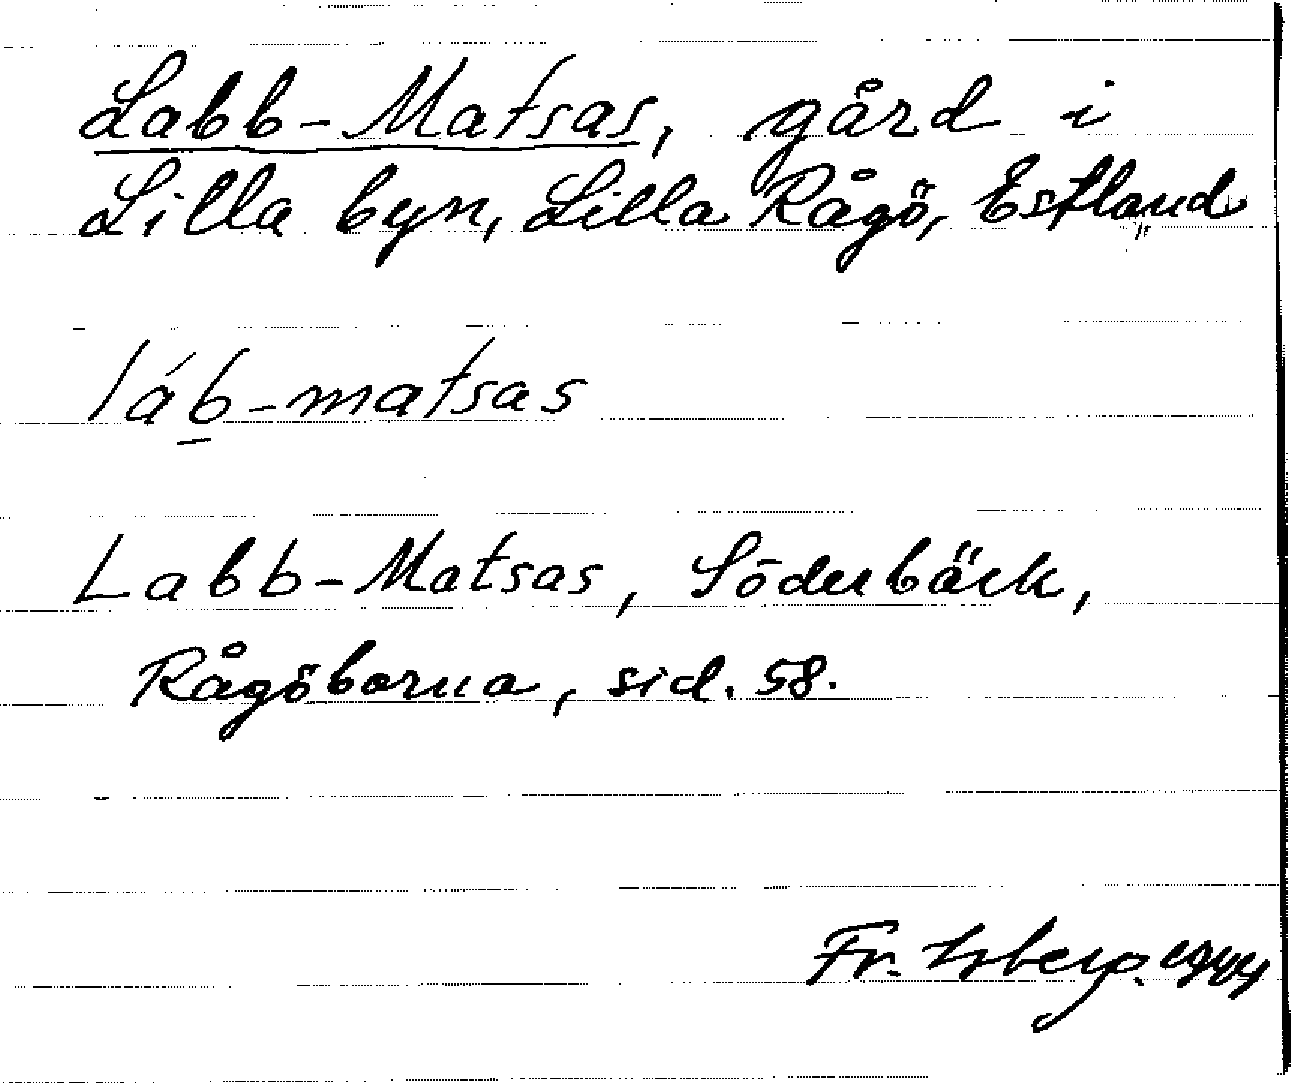 Labb-Matsas, gård i
Lilla byn, Lilla Rågö, Estland
láb̲-matsas
Labb-Matsas, Söderbäck,
Rågöborna, sid. 58.
Fr. Isberg. 1944